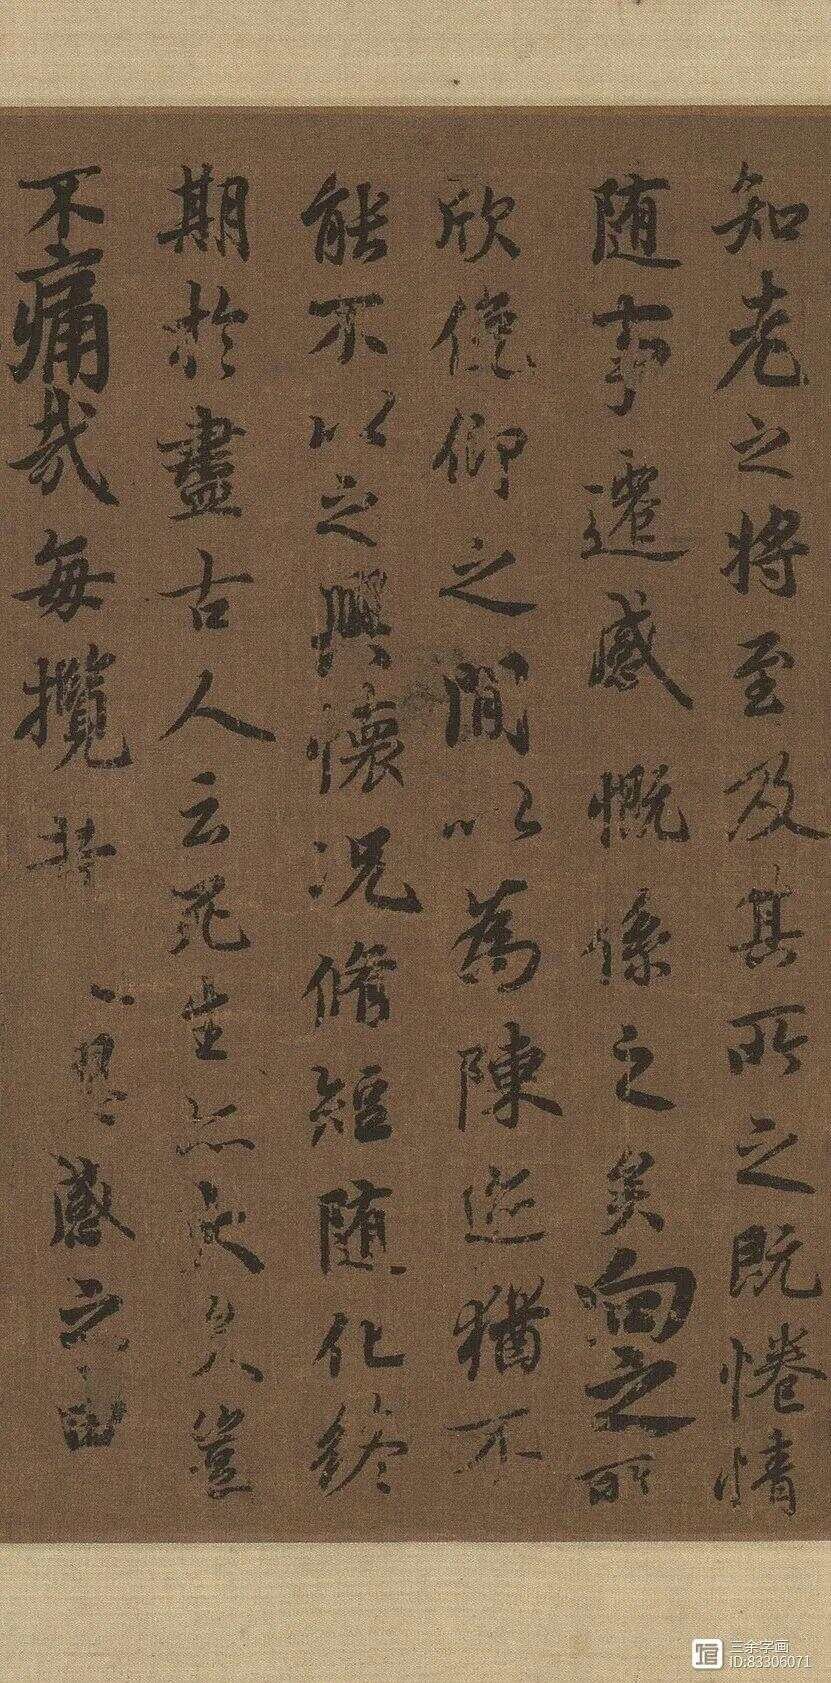 知老之将至及其所之既惓情
随事遷感慨係之矣向之所
欣俛仰之間以為陳迹猶不
能不以之興懷況脩短随化終
期於盡古人云死生亦大矣豈
不痛哉每攬昔人興感之由
三余字画
ID:83306071